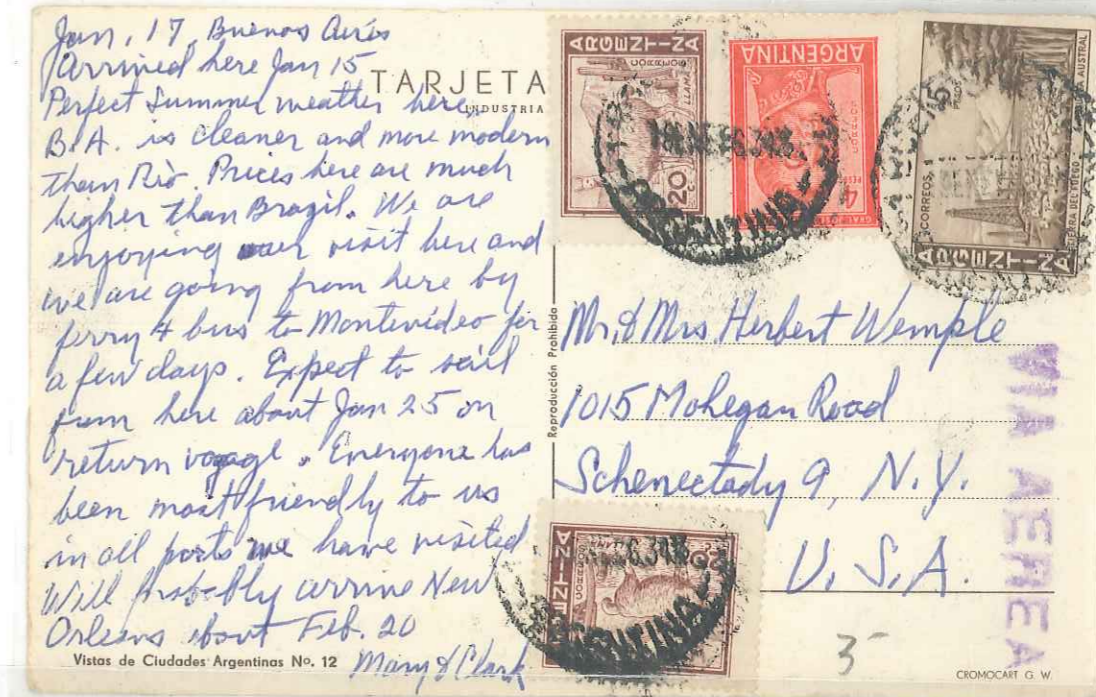 Jan. 17, Buenos Aires
Arrived here Jan 15
Perfect Summer weather here,
B.A. is cleaner and more modern
than Rio. Prices here are much
higher than Brazil. We are
enjoying our visit here and
we are going from here by
ferry & bus to Montevideo for
a few days. Expect to sail
from here about Jan 25 on
return voyage. Everyone has
been most friendly to us
in all ports we have visited
Will probably arrive New
Orleans about Feb. 20
Mary & Clark
TARJETA
INDUSTRIA
Vistas de Ciudades Argentinas No. 12
Reproducción Prohibida
ARGENTINA
CORREOS
LLAMA
20
C.
ARGENTINA
CORREOS
4
PESOS
GRAL. JOSE
CORREOS
PESOS
AUSTRAL
TIERRA DEL FUEGO
ARGENTINA
ARGENTINA
Mr. & Mrs. Herbert Wemple
1015 Mohegan Road
Schenectady 9, N.Y.
U.S.A.
VIA AEREA
ENTINA
CORREOS
20
ARGENTINA
3-
CROMOCART G. W.